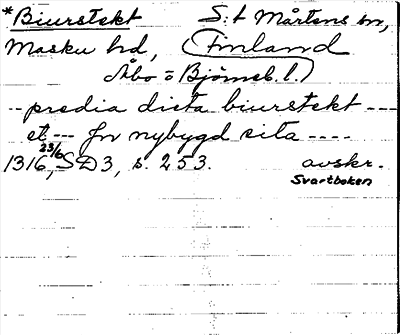 *Biurstekt S:t Mårtens sn,
Masku hd, (Finland
Åbo o Björneb. l.)
-- predia dicta biurstekt ---
et --- in nybygd sita ----
1316 23/6, SD3, s. 253. avskr.
Svartboken